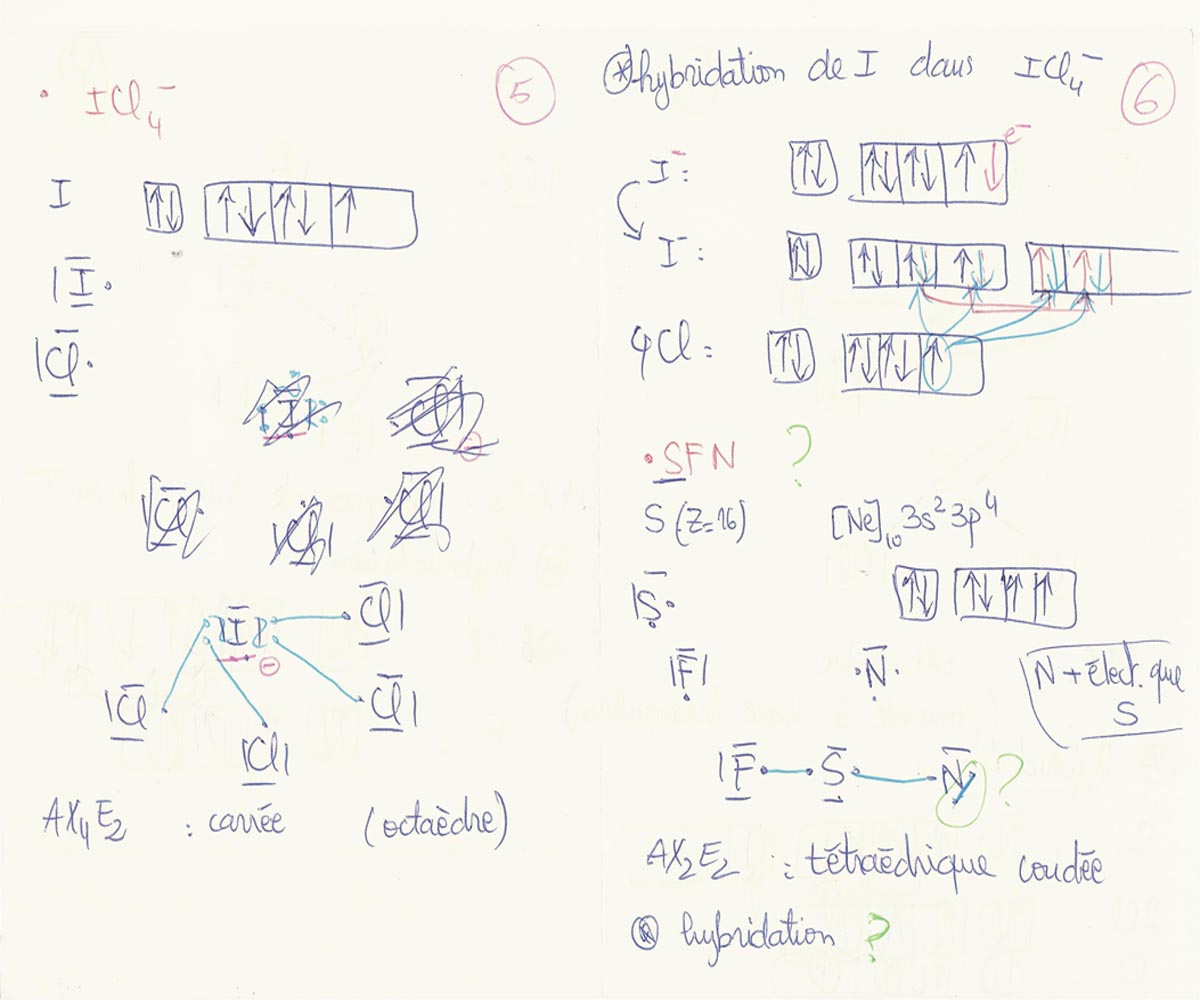 5
• ICl₄⁻
I ↑↓ ↑↓ ↑↓ ↑
|I•
|Cl•
I
Cl|
|Cl
|Cl|
Cl|
AX₄E₂ : carrée (octaèdre)
⊛ hybridation de I dans ICl₄⁻
6
I⁻: ↑↓ ↑↓ ↑↓ ↑↓ e⁻
I⁻: ↑↓ ↑↓ ↑↓ ↑↓ ↑↓ ↑↓
4Cl: ↑↓ ↑↓ ↑↓ ↑
• SFN ?
S (Z=16) [Ne]₁₀ 3s² 3p⁴
|S• ↑↓ ↑↓ ↑ ↑
|F| •N•
N + élect. que
S
|F•—•S•—•N ?
AX₂E₂ : tétraédrique coudée
hybridation ?